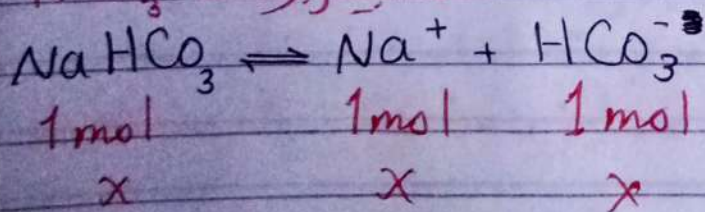 NaHCo₃ ⇌ Na⁺ + HCo₃⁻
1 mol 1 mol 1 mol
x x x